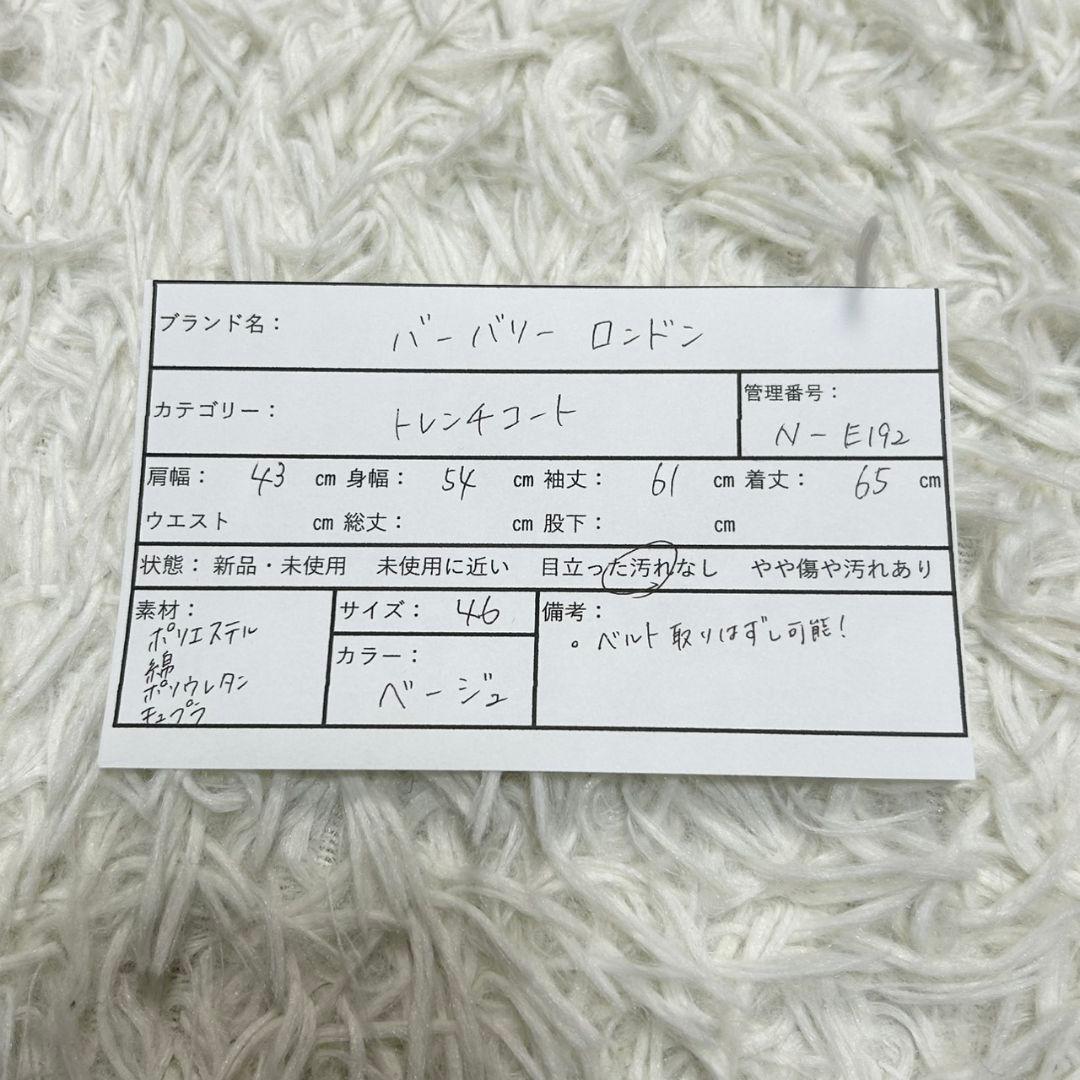 ブランド名： バーバリー ロンドン
カテゴリー： トレンチコート
管理番号： N-E192
肩幅： 43 ㎝ 身幅： 54 ㎝ 袖丈： 61 ㎝ 着丈： 65 ㎝
ウエスト ㎝ 総丈： ㎝ 股下： ㎝
状態： 新品・未使用 未使用に近い 目立った汚れなし やや傷や汚れあり
素材：
ポリエステル
綿
ポリウレタン
キュプラ
サイズ： 46
カラー：
ベージュ
備考：
。ベルト取りはずし可能！